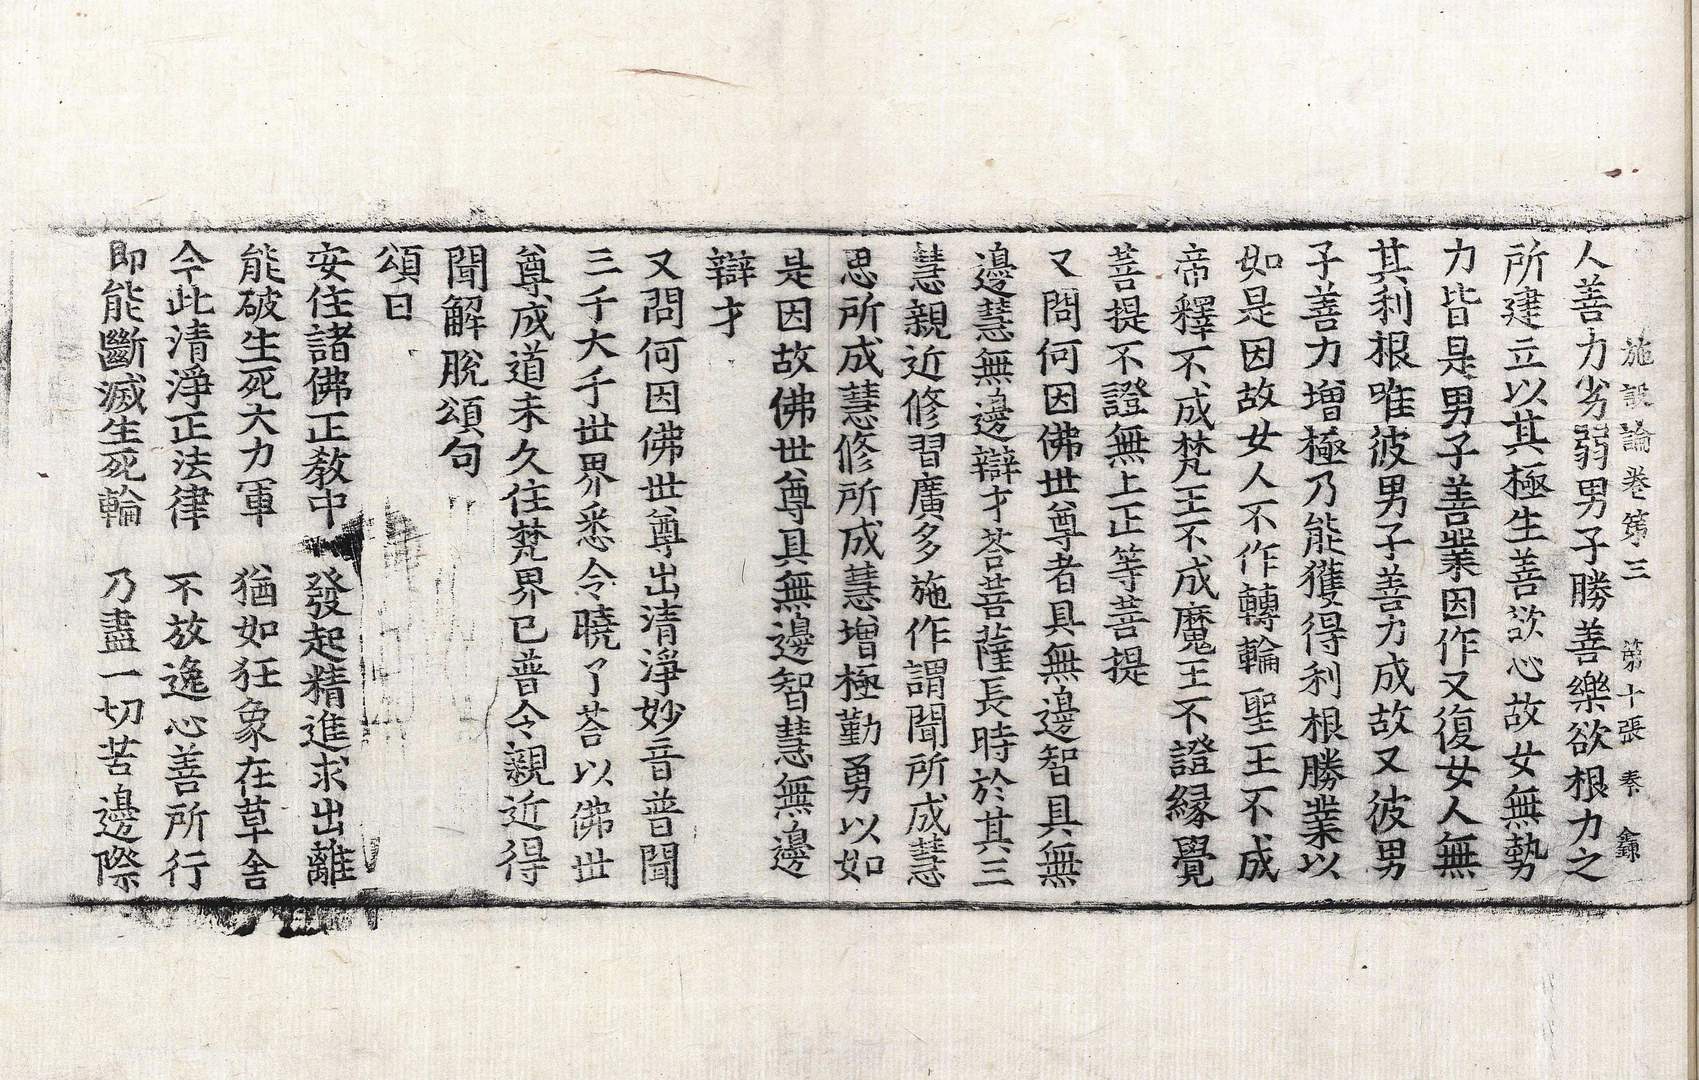 施設論卷第三 第十張 秦 鑫
人善力劣弱男子勝善樂欲根力之
所建立以其極生善欲心故女無勢
力皆是男子善業因作又復女人無
其利根唯彼男子善力成故又彼男
子善力增極乃能獲得利根勝業以
如是因故女人不作轉輪聖王不成
帝釋不成梵王不成魔王不證緣覺
菩提不證無上正等菩提
又問何因佛世尊者具無邊智具無
邊慧無邊辯才荅菩薩長時於其三
慧親近修習廣多施作謂聞所成慧
思所成慧修所成慧增極勤勇以如
是因故佛世尊具無邊智慧無邊
辯才
又問何因佛世尊出清淨妙音普聞
三千大千世界悉令曉了荅以佛世
尊成道未久住梵界已普令親近得
聞解脫頌句
頌曰
安住諸佛正教中 發起精進求出離
能破生死大力軍 猶如狂象在草舍
今此清淨正法律 不放逸心善所行
即能斷滅生死輪 乃盡一切苦邊際